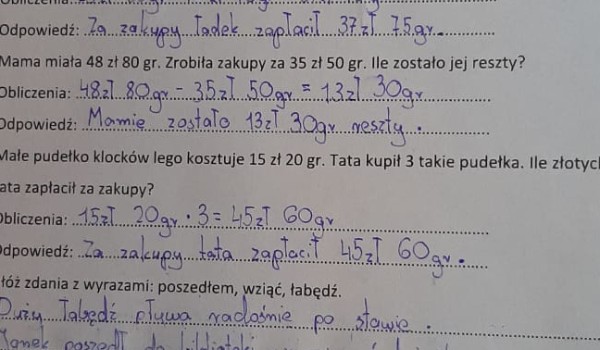 Obliczenia:
Odpowiedź: Za zakupy Tadek zapłacił 37 zł 75 gr.
Mama miała 48 zł 80 gr. Zrobiła zakupy za 35 zł 50 gr. Ile zostało jej reszty?
Obliczenia: 48 zł 80 gr - 35 zł 50 gr = 13 zł 30 gr
Odpowiedź: Mamie zostało 13 zł 30 gr reszty.
Małe pudełko klocków lego kosztuje 15 zł 20 gr. Tata kupił 3 takie pudełka. Ile złotych
ata zapłacił za zakupy?
Obliczenia: 15 zł 20 gr · 3 = 45 zł 60 gr
Odpowiedź: Za zakupy tata zapłacił 45 zł 60 gr.
łóż zdania z wyrazami: poszedłem, wziąć, łabędź.
Duży łabędź pływa radośnie po stawie.
poszedł do